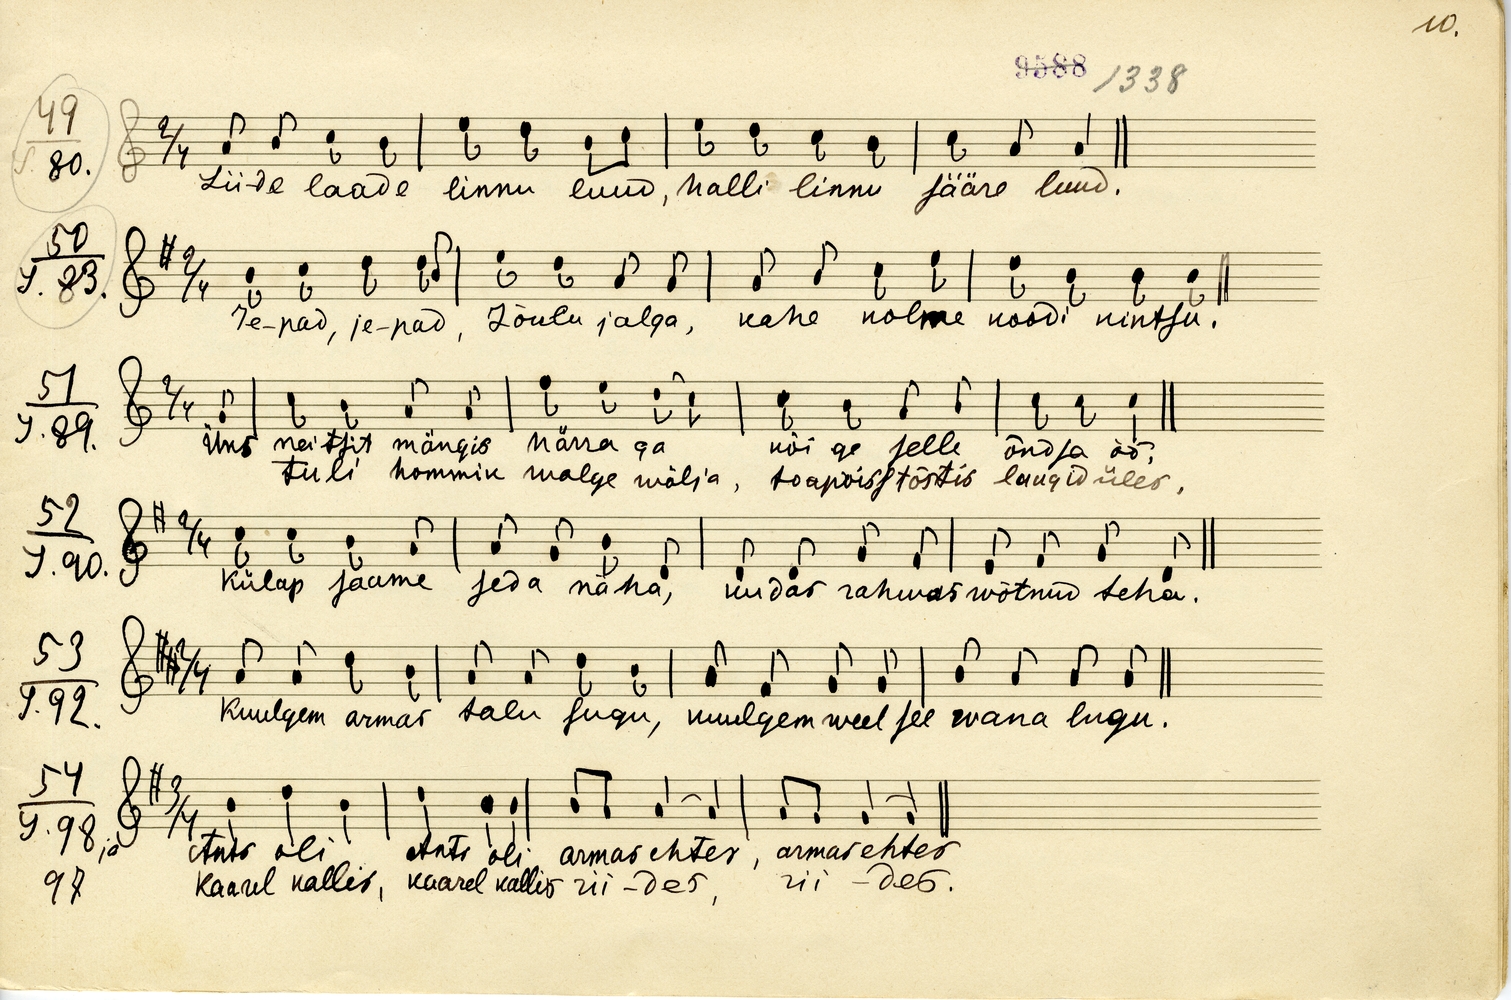 10.
9588 1338
49
80.
2/4
Lii-de laade linnu luud, halli linnu sääre luud.
50
J. 83.
2/4
Je-pad, je-pad, Jõulu jalga, kahe kolme koodi kintsu.
51
J. 89.
2/4
Üks neitsit mängis härra ga kõi ge selle õndsa öö;
tuli hommik walge wälja, toapoiss tõstis laugid üles,
52
J. 90.
2/4
Külap saame seda näha, kudas rahwas wõtnud teha.
53
J. 92.
2/4
Kuulgem armas talu sugu, kuulgem weel see wana lugu.
54
J. 98, ja
97
3/4
Ants oli Ants oli armas ehtes, armas ehtes
Kaarel kallis, kaarel kallis rii-des, rii-des.